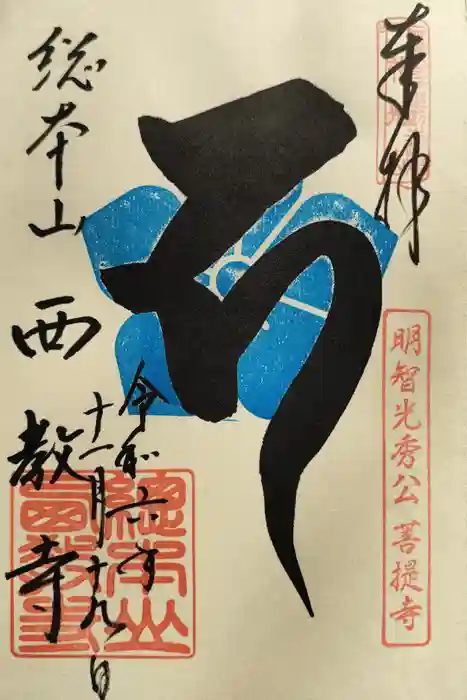 奉拝
明智光秀公 菩提寺
令和六年
十一月十九日
総本山 西教寺
總本山
西教寺